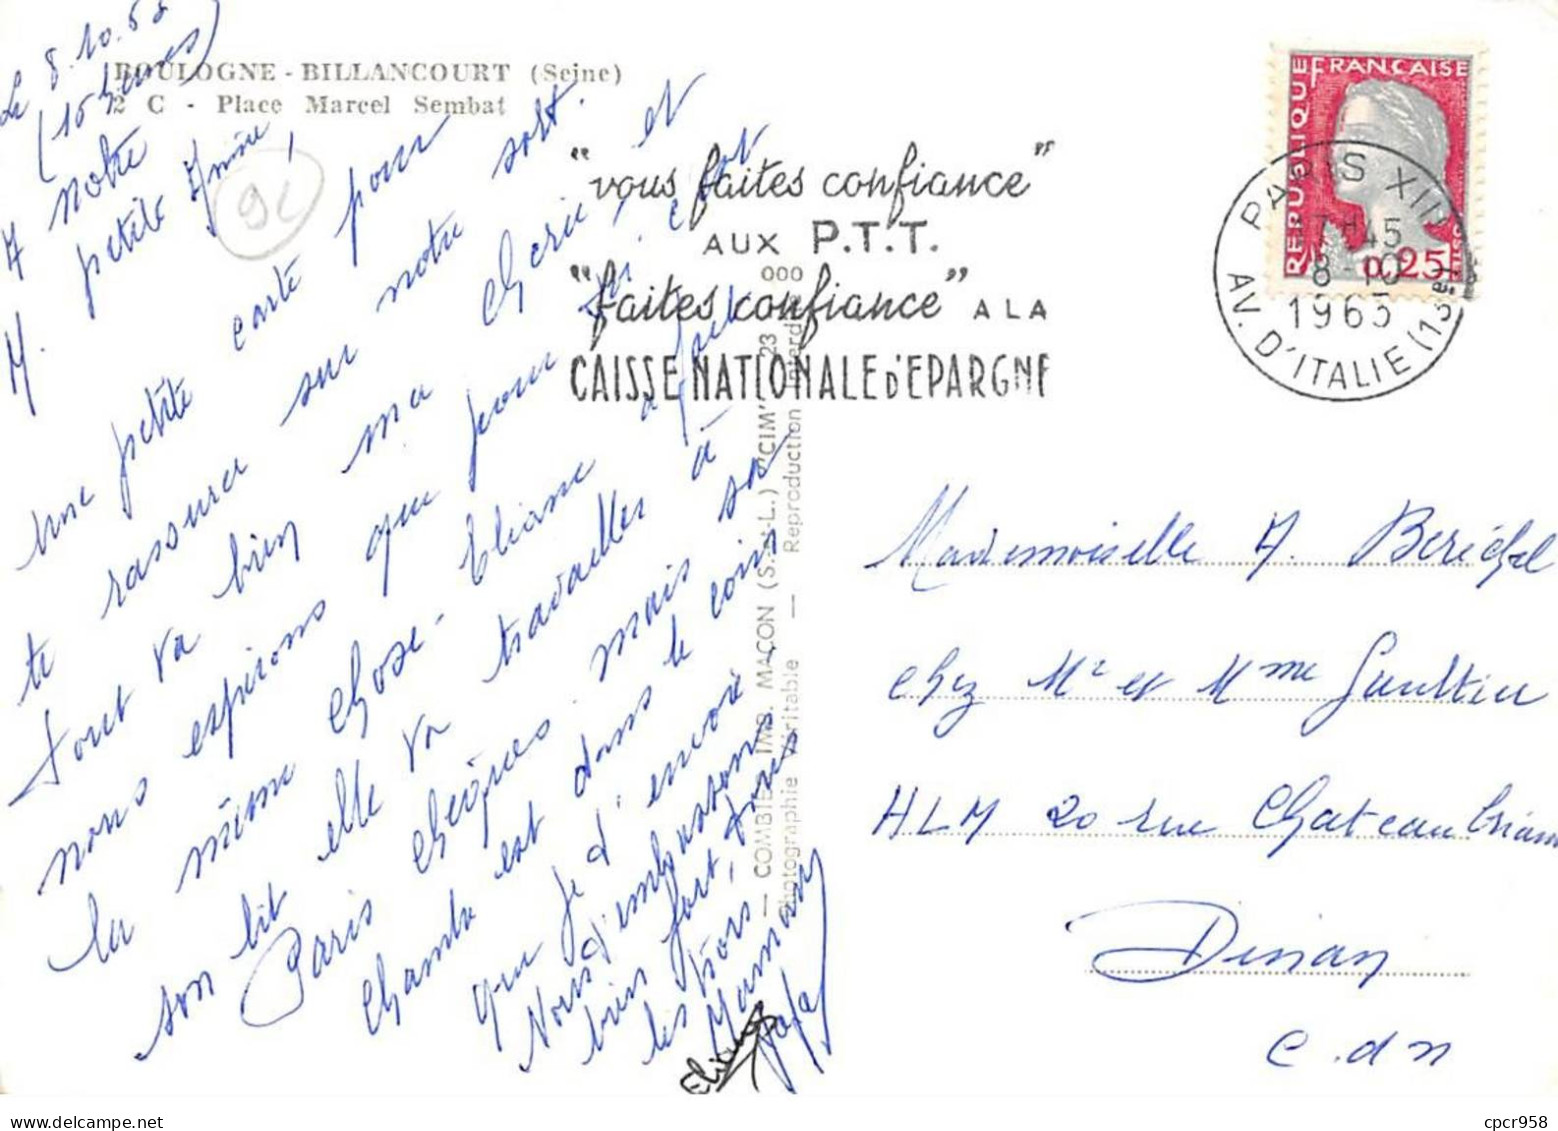 BOULOGNE - BILLANCOURT (Seine)
2 C - Place Marcel Sembat
Le 8.10.63
(15 heures)
A notre
petite
M.
une petite carte pour
te rassurer sur notre sort.
tout va bien ma cherie et
nous espérons que pour toi c'est
la même chose - Eliane a fait
son lit elle va travailler à
Paris mais sa
chambre est dans le coin
que je d'
Nous t'embrassons
bien fort, tous
les trois
Maman
Papa
Eliane
92
"vous faites confiance"
AUX P.T.T.
"faites confiance" A LA
CAISSE NATIONALE D'EPARGNE
REPUBLIQUE FRANÇAISE
0,25
PARIS XIII
17H45
8-10
1963
AV. D'ITALIE (13e)
— COMBIER IMP. MACON (S.-et-L.) "CIM"
Photographie Véritable — Reproduction interdite
23
000
Mademoiselle A. Berichel
chez Mr et Mme Gaultier
HLM 20 rue Chateaubriand
Dinan
C.d.n
cpcr958